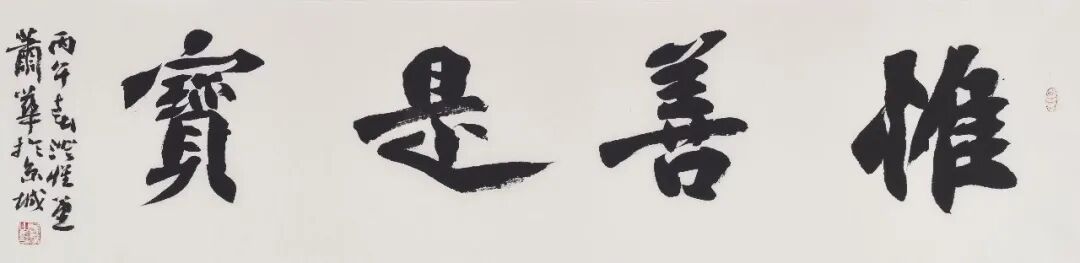 惟善是寶
丙午春澄懷堂
蕭華於京城